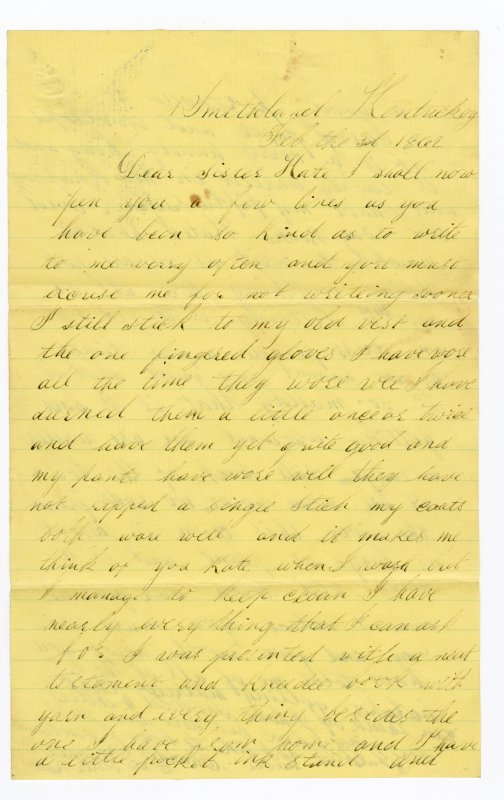 Smithland Kentuckey
Feb the 3d 1862
Dear sister Kate I shall now
pen you a few lines as you
have been so kind as to write
to me verry often and you must
excuse me for not writeing sooner
I still stick to my old vest and
the one fingered gloves I have wore
all the time they wore well I have
darned them a little once or twice
and have them yet quite good and
my pants have wore well they have
not ripped a single stich my coats
both wore well and it makes me
think of you Kate when I wash but
I manage to keep clean I have
nearly every thing that I can ask
for I was presented with a neat
testament and kneedle book with
yarn and every thing besides the
one I have from home and I have
a little pocket ink stand and